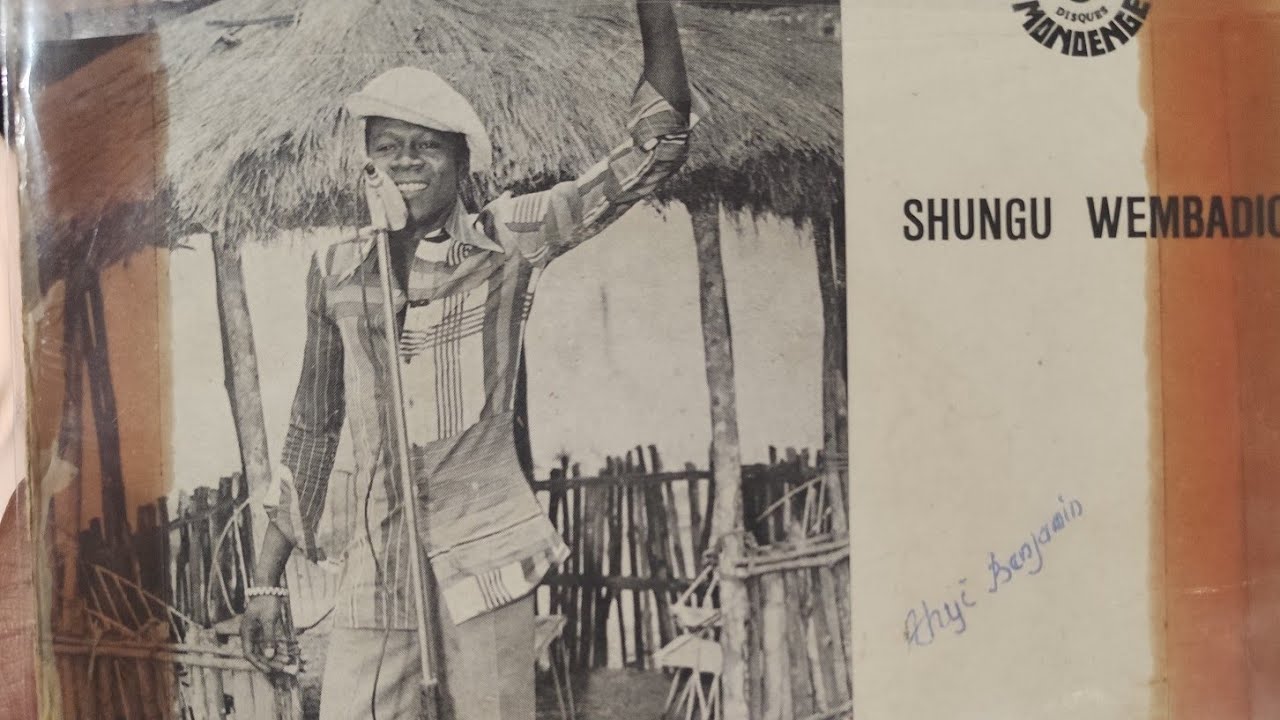 DISQUES
MONDENGE
SHUNGU WEMBADIO
Benjamin